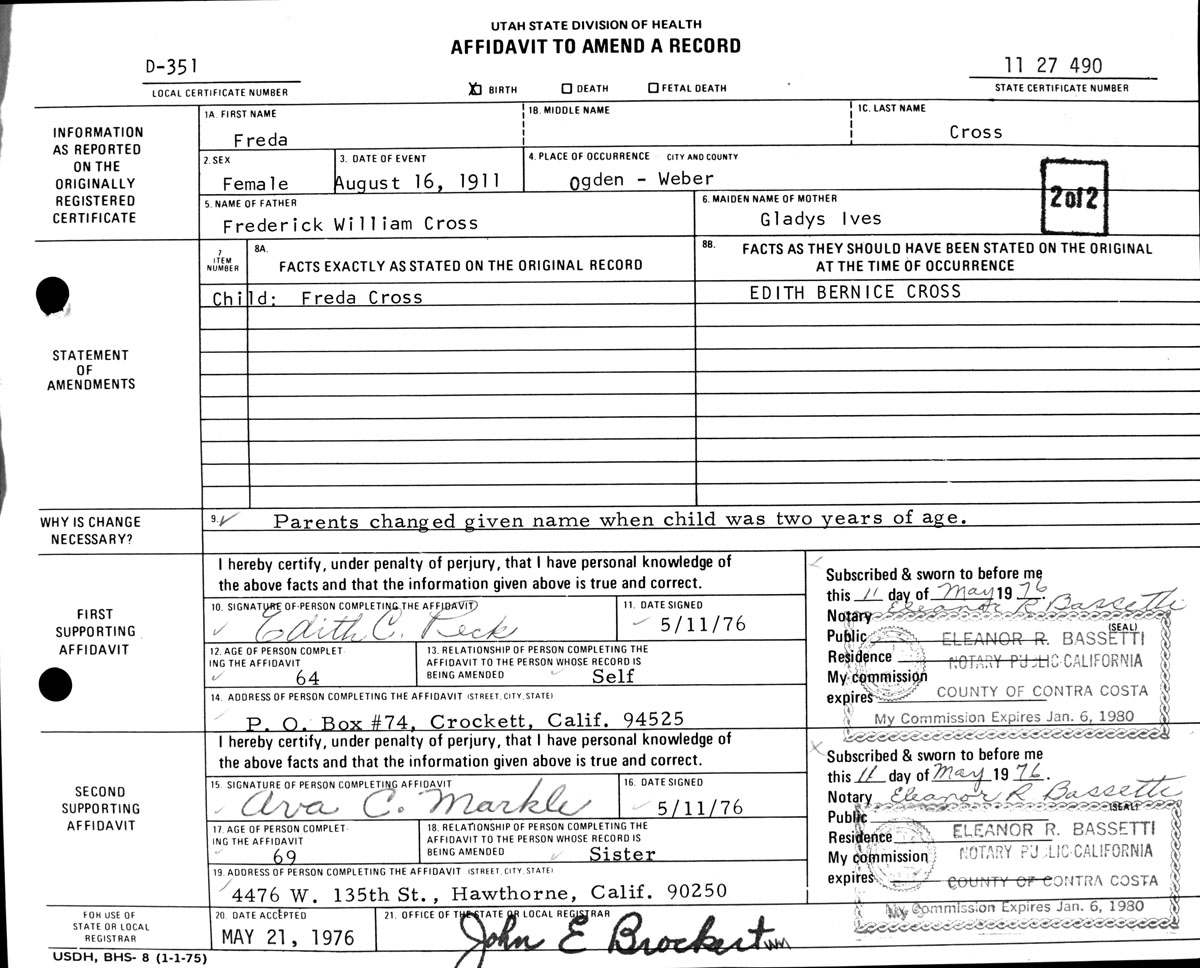 UTAH STATE DIVISION OF HEALTH
AFFIDAVIT TO AMEND A RECORD
D-351
LOCAL CERTIFICATE NUMBER
X BIRTH DEATH FETAL DEATH
11 27 490
STATE CERTIFICATE NUMBER
INFORMATION
AS REPORTED
ON THE
ORIGINALLY
REGISTERED
CERTIFICATE
1A. FIRST NAME
Freda
1B. MIDDLE NAME
1C. LAST NAME
Cross
2. SEX
Female
3. DATE OF EVENT
August 16, 1911
4. PLACE OF OCCURRENCE CITY AND COUNTY
Ogden - Weber
5. NAME OF FATHER
Frederick William Cross
6. MAIDEN NAME OF MOTHER
Gladys Ives
2 of 2
STATEMENT
OF
AMENDMENTS
7
ITEM
NUMBER
8A.
FACTS EXACTLY AS STATED ON THE ORIGINAL RECORD
8B.
FACTS AS THEY SHOULD HAVE BEEN STATED ON THE ORIGINAL
AT THE TIME OF OCCURRENCE
Child: Freda Cross
EDITH BERNICE CROSS
WHY IS CHANGE
NECESSARY?
9. Parents changed given name when child was two years of age.
FIRST
SUPPORTING
AFFIDAVIT
I hereby certify, under penalty of perjury, that I have personal knowledge of
the above facts and that the information given above is true and correct.
10. SIGNATURE OF PERSON COMPLETING THE AFFIDAVIT
Edith C. Peck
11. DATE SIGNED
5/11/76
12. AGE OF PERSON COMPLET-
ING THE AFFIDAVIT
64
13. RELATIONSHIP OF PERSON COMPLETING THE
AFFIDAVIT TO THE PERSON WHOSE RECORD IS
BEING AMENDED Self
14. ADDRESS OF PERSON COMPLETING THE AFFIDAVIT (STREET, CITY, STATE)
P. O. Box #74, Crockett, Calif. 94525
Subscribed & sworn to before me
this 11 day of May 1976.
Notary Eleanor R Bassetti
Public (SEAL)
ELEANOR R. BASSETTI
Residence NOTARY PUBLIC-CALIFORNIA
My commission
expires COUNTY OF CONTRA COSTA
My Commission Expires Jan. 6, 1980
SECOND
SUPPORTING
AFFIDAVIT
I hereby certify, under penalty of perjury, that I have personal knowledge of
the above facts and that the information given above is true and correct.
15. SIGNATURE OF PERSON COMPLETING AFFIDAVIT
Ava C. Markle
16. DATE SIGNED
5/11/76
17. AGE OF PERSON COMPLET-
ING THE AFFIDAVIT
69
18. RELATIONSHIP OF PERSON COMPLETING THE
AFFIDAVIT TO THE PERSON WHOSE RECORD IS
BEING AMENDED Sister
19. ADDRESS OF PERSON COMPLETING THE AFFIDAVIT (STREET, CITY, STATE)
4476 W. 135th St., Hawthorne, Calif. 90250
Subscribed & sworn to before me
this 11 day of May 1976.
Notary Eleanor R Bassetti
Public (SEAL)
ELEANOR R. BASSETTI
Residence NOTARY PUBLIC-CALIFORNIA
My commission
expires COUNTY OF CONTRA COSTA
My Commission Expires Jan. 6, 1980
FOR USE OF
STATE OR LOCAL
REGISTRAR
20. DATE ACCEPTED
MAY 21, 1976
21. OFFICE OF THE STATE OR LOCAL REGISTRAR
John E Brockert
USDH, BHS- 8 (1-1-75)